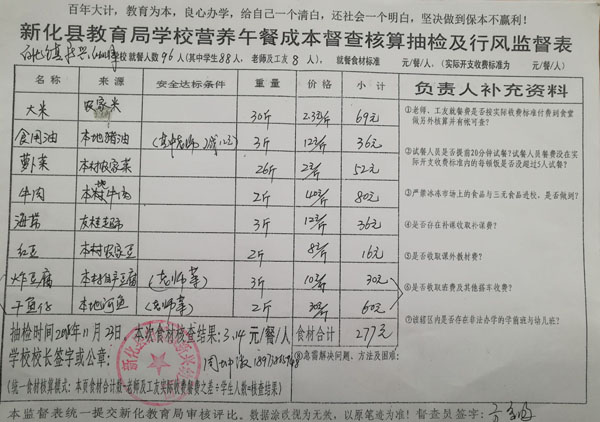 百年大计，教育为本，良心办学，给自己一个清白，还社会一个明白，坚决做到保本不赢利！
新化县教育局学校营养午餐成本督查核算抽检及行风监督表
就餐人数96人(其中学生88人，老师及工友8人)，就餐食材标准 元/餐/人，(实际开支收费标准为 元/餐/人)
名称 来源 安全达标条件 重量 价格 小计 负责人补充资料
大米 农家米 30斤 2.3元/斤 69元
食用油 本地猪油 3斤 12元/斤 36元
萝卜菜 本村农家菜 26斤 2元/斤 52元
牛肉 本村牛肉 2斤 40元/斤 80元
海带 3斤 12元/斤 36元
红豆 本村农家豆 2斤 8元/斤 16元
炸豆腐 豆腐 (老师菜) 3斤 10元/斤 30元
干鱼仔 本地河鱼 (老师菜) 2斤 30元/斤 60元
①老师、工友就餐费是否按实际收费标准付费到食堂做另外核算并有帐可查?
②试餐人员是否提前20分钟试餐?试餐人员餐费没在实际开支收费标准内的每顿饭是否没超过5人试餐?
③严禁冰冻市场上的食品与三无食品进校，是否做到?
④是否存在补课收取补课费?
⑤是否收取课外教材费?
⑥是否收取班费及其他搭车收费?
⑦该辖区内是否存在非法办学的学前班与幼儿班?
抽检时间2018年11月23日 本次食材核查结果：3.14元/餐/人 食材合计 277元
学校校长签字或公章：
⑧急需解决问题、方法及困难：
(统一食材核算模式：本页食材合计数-老师及工友实际收费餐费之差÷学生人数=核查结果)
本监督表统一提交新化教育局审核评比。数据涂改视为无效，以原笔迹为准！督查员签字：